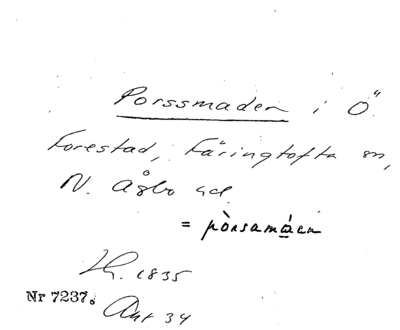 Porssmaden i Ö
Forestad, Färingtofta sn,
N. Åsbo hd.
= pòrsamáen
Lh. 1835
Nr 7237. Ant 34